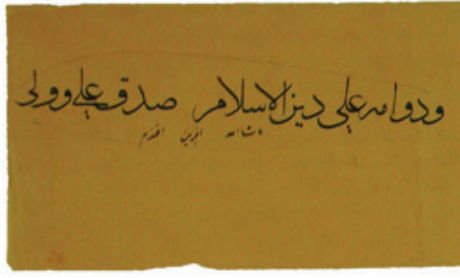 ودوامه علي دين الاسلام صدق علي وولى